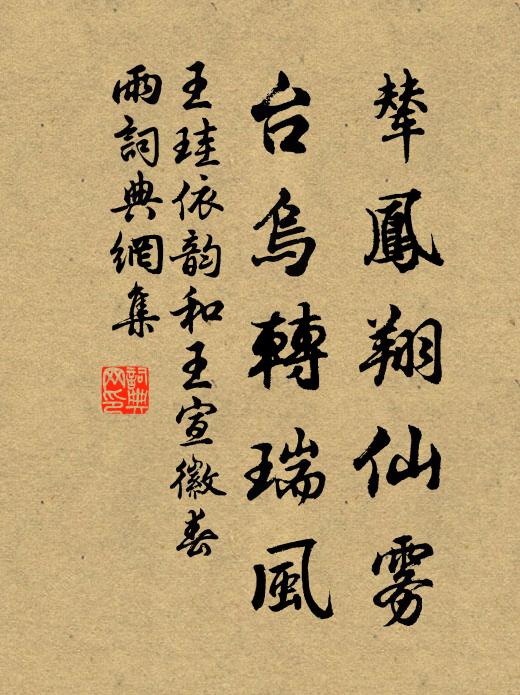 輦鳳翔仙雾
台烏轉瑞風
王珪依韵和王宣徽春
雨詞典網集
詞典网印